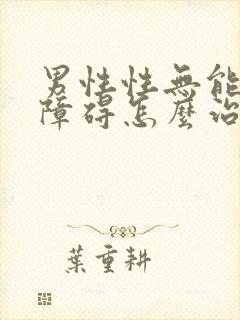 男性性無能
障碍怎麼治
葉重耕